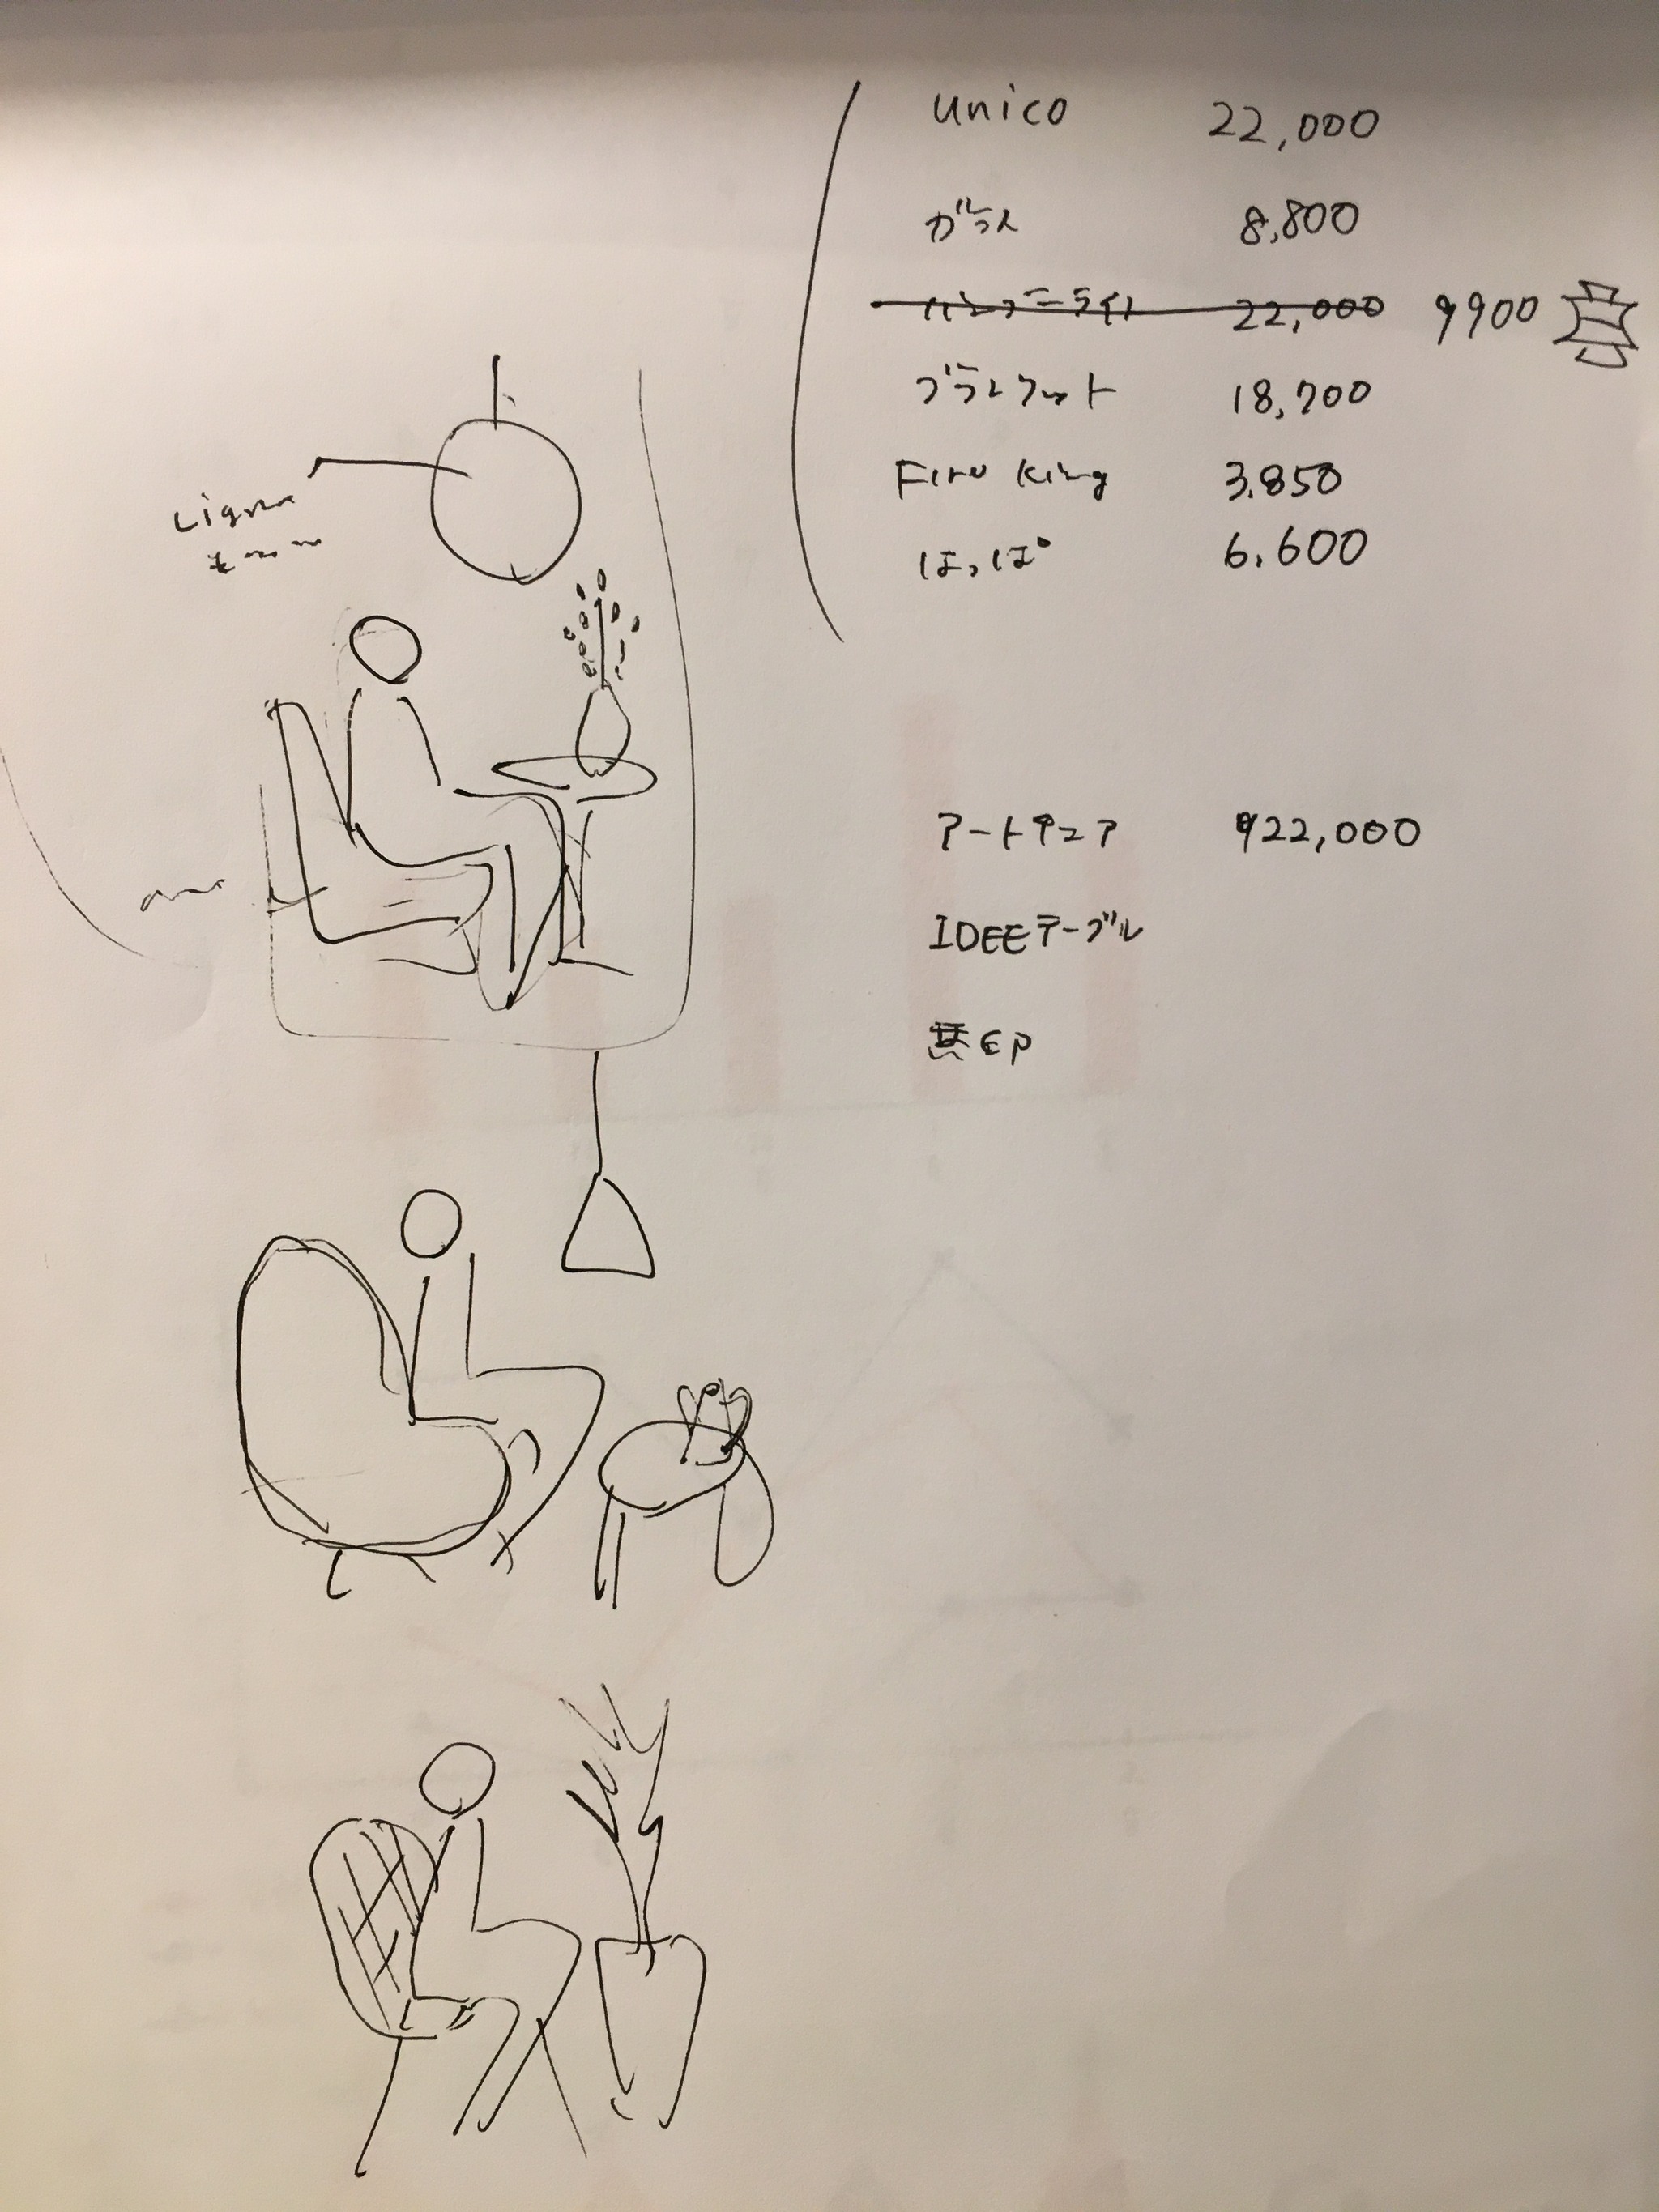 unico 22,000
ガラス 8,800
22,000 9900
ブランケット 18,700
Fire King 3,850
はっぱ 6,600
Ligne
アートチェア 22,000
IDEEテーブル
無印